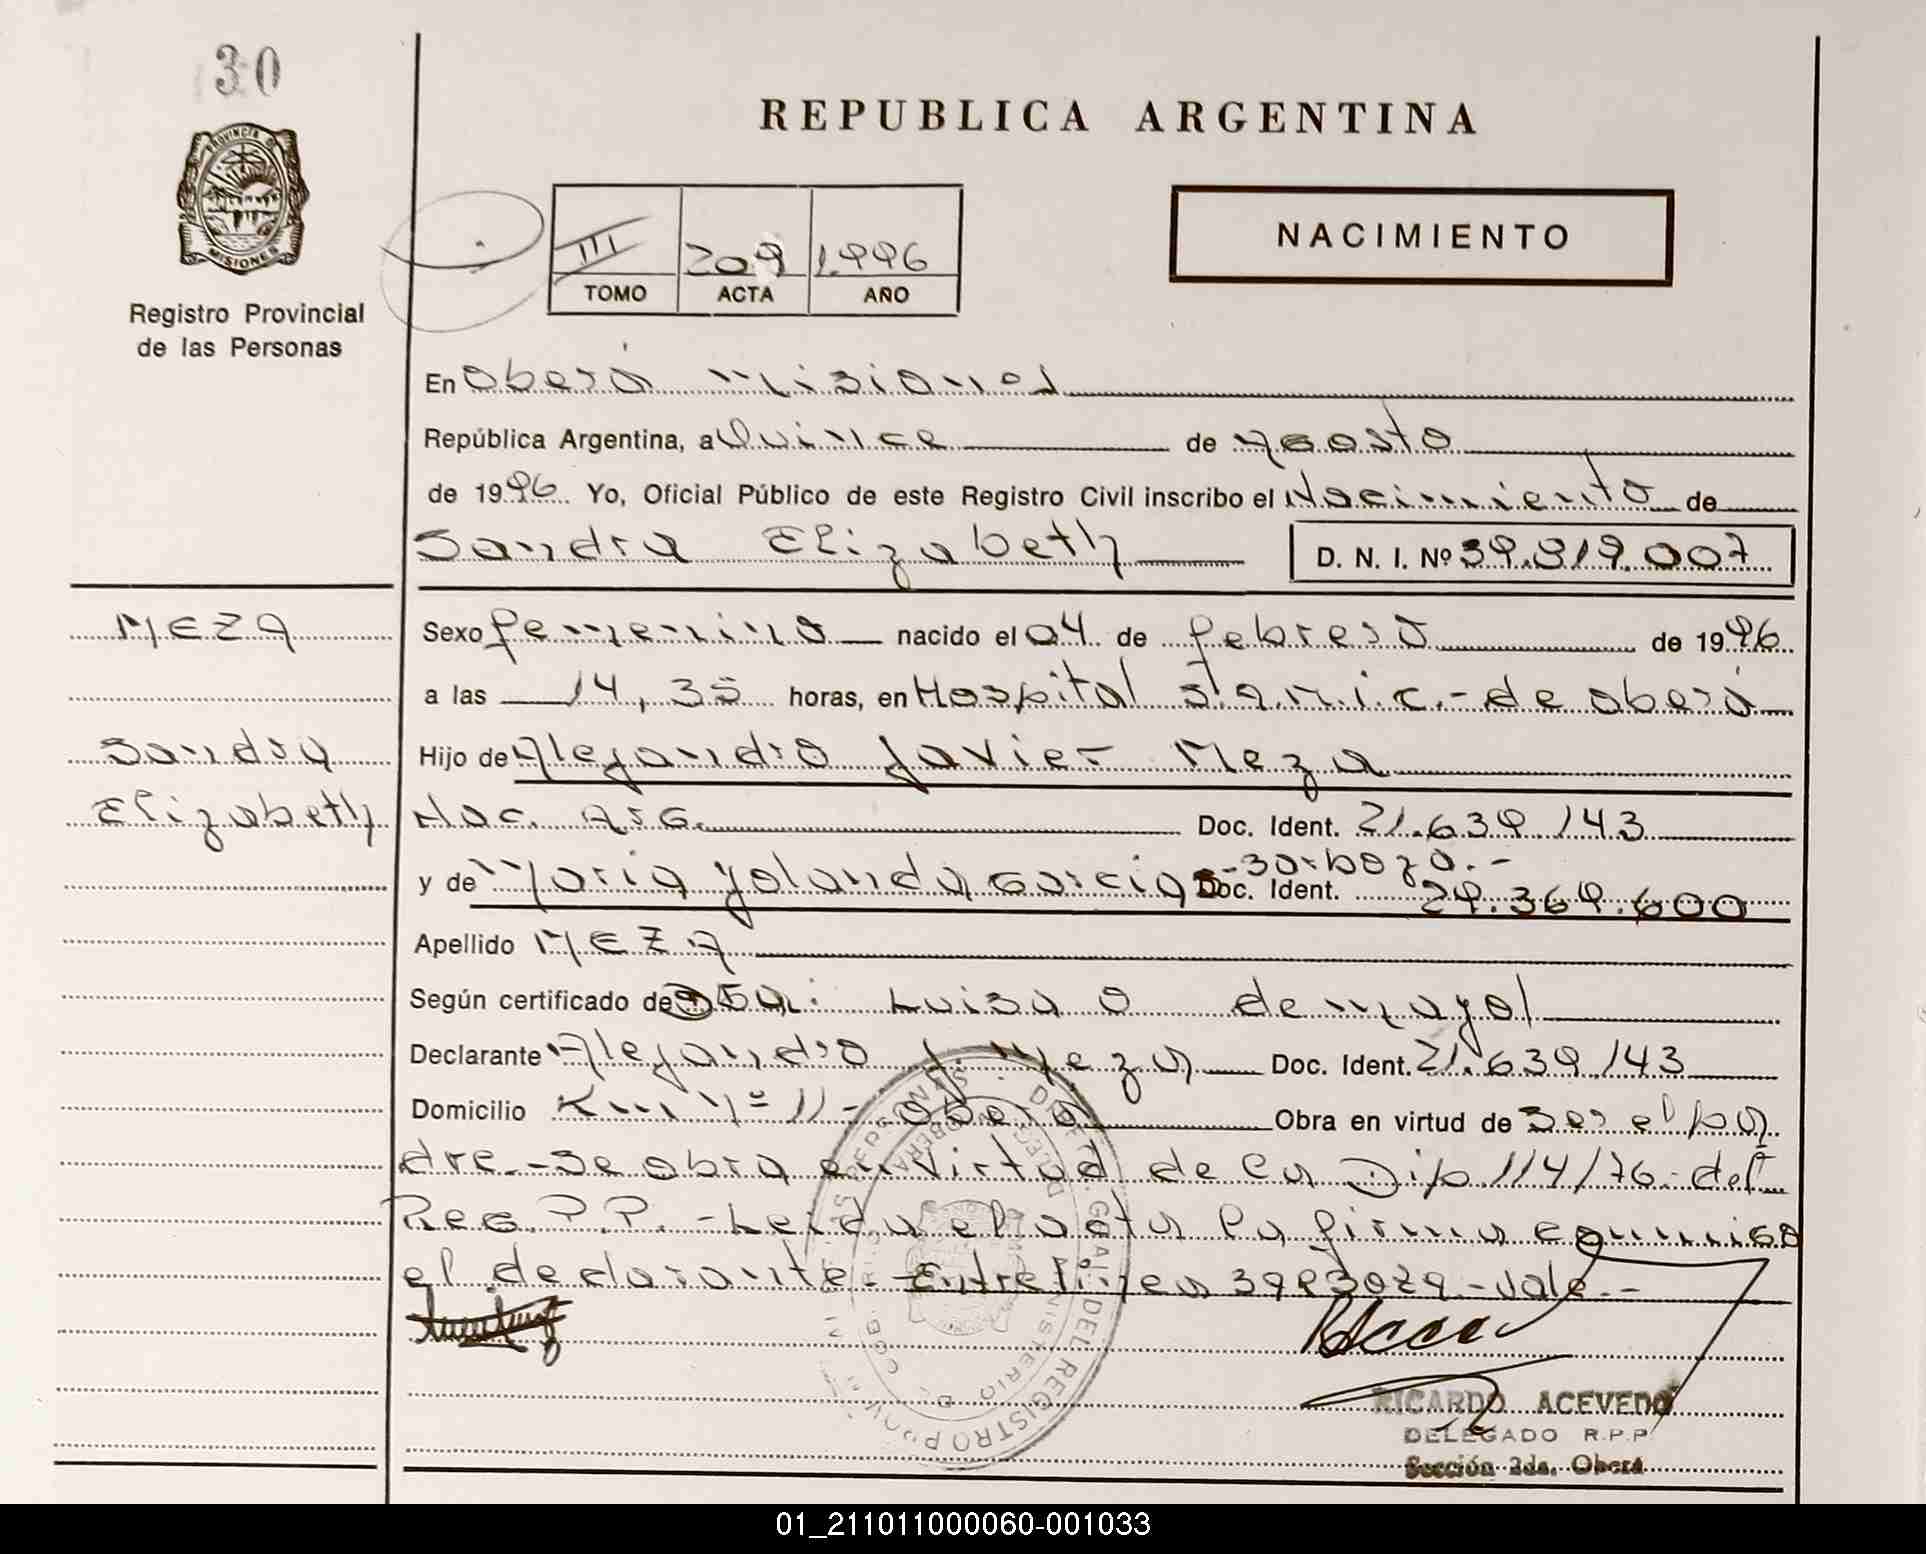 30
PROVINCIA DE
MISIONES
Registro Provincial
de las Personas
REPUBLICA ARGENTINA
III 209 1.996
TOMO ACTA AÑO
NACIMIENTO
En Oberá Misiones
República Argentina, a Quince de Agosto
de 1996 Yo, Oficial Público de este Registro Civil inscribo el Nacimiento de
Sandra Elizabeth D. N. I. Nº 39.819.007
MEZA
Sandra
Elizabeth
Sexo femenino nacido el 04 de febrero de 1996
a las 14,35 horas, en Hospital S.a.m.i.c.- de Oberá
Hijo de Alejandro Javier Meza
Nac. Arg. Doc. Ident. 21.639.143
-Barboza.-
y de Maria Yolanda Garcia Doc. Ident. 24.369.600
Apellido MEZA
Según certificado de Luisa O de mayol
Declarante Alejandro J. Meza Doc. Ident. 21.639.143
Domicilio Km Nº 11 - Oberá Obra en virtud de ser el pa
dre.- Se obra en virtud de la Disp 114/76.- del
Reg. P.P. - Leida el acta la firma conmigo
el declarante.- Entrelinea Barboza - Vale.-
RICARDO ACEVEDO
DELEGADO R.P.P
Sección 2da. Oberá
01_211011000060-001033